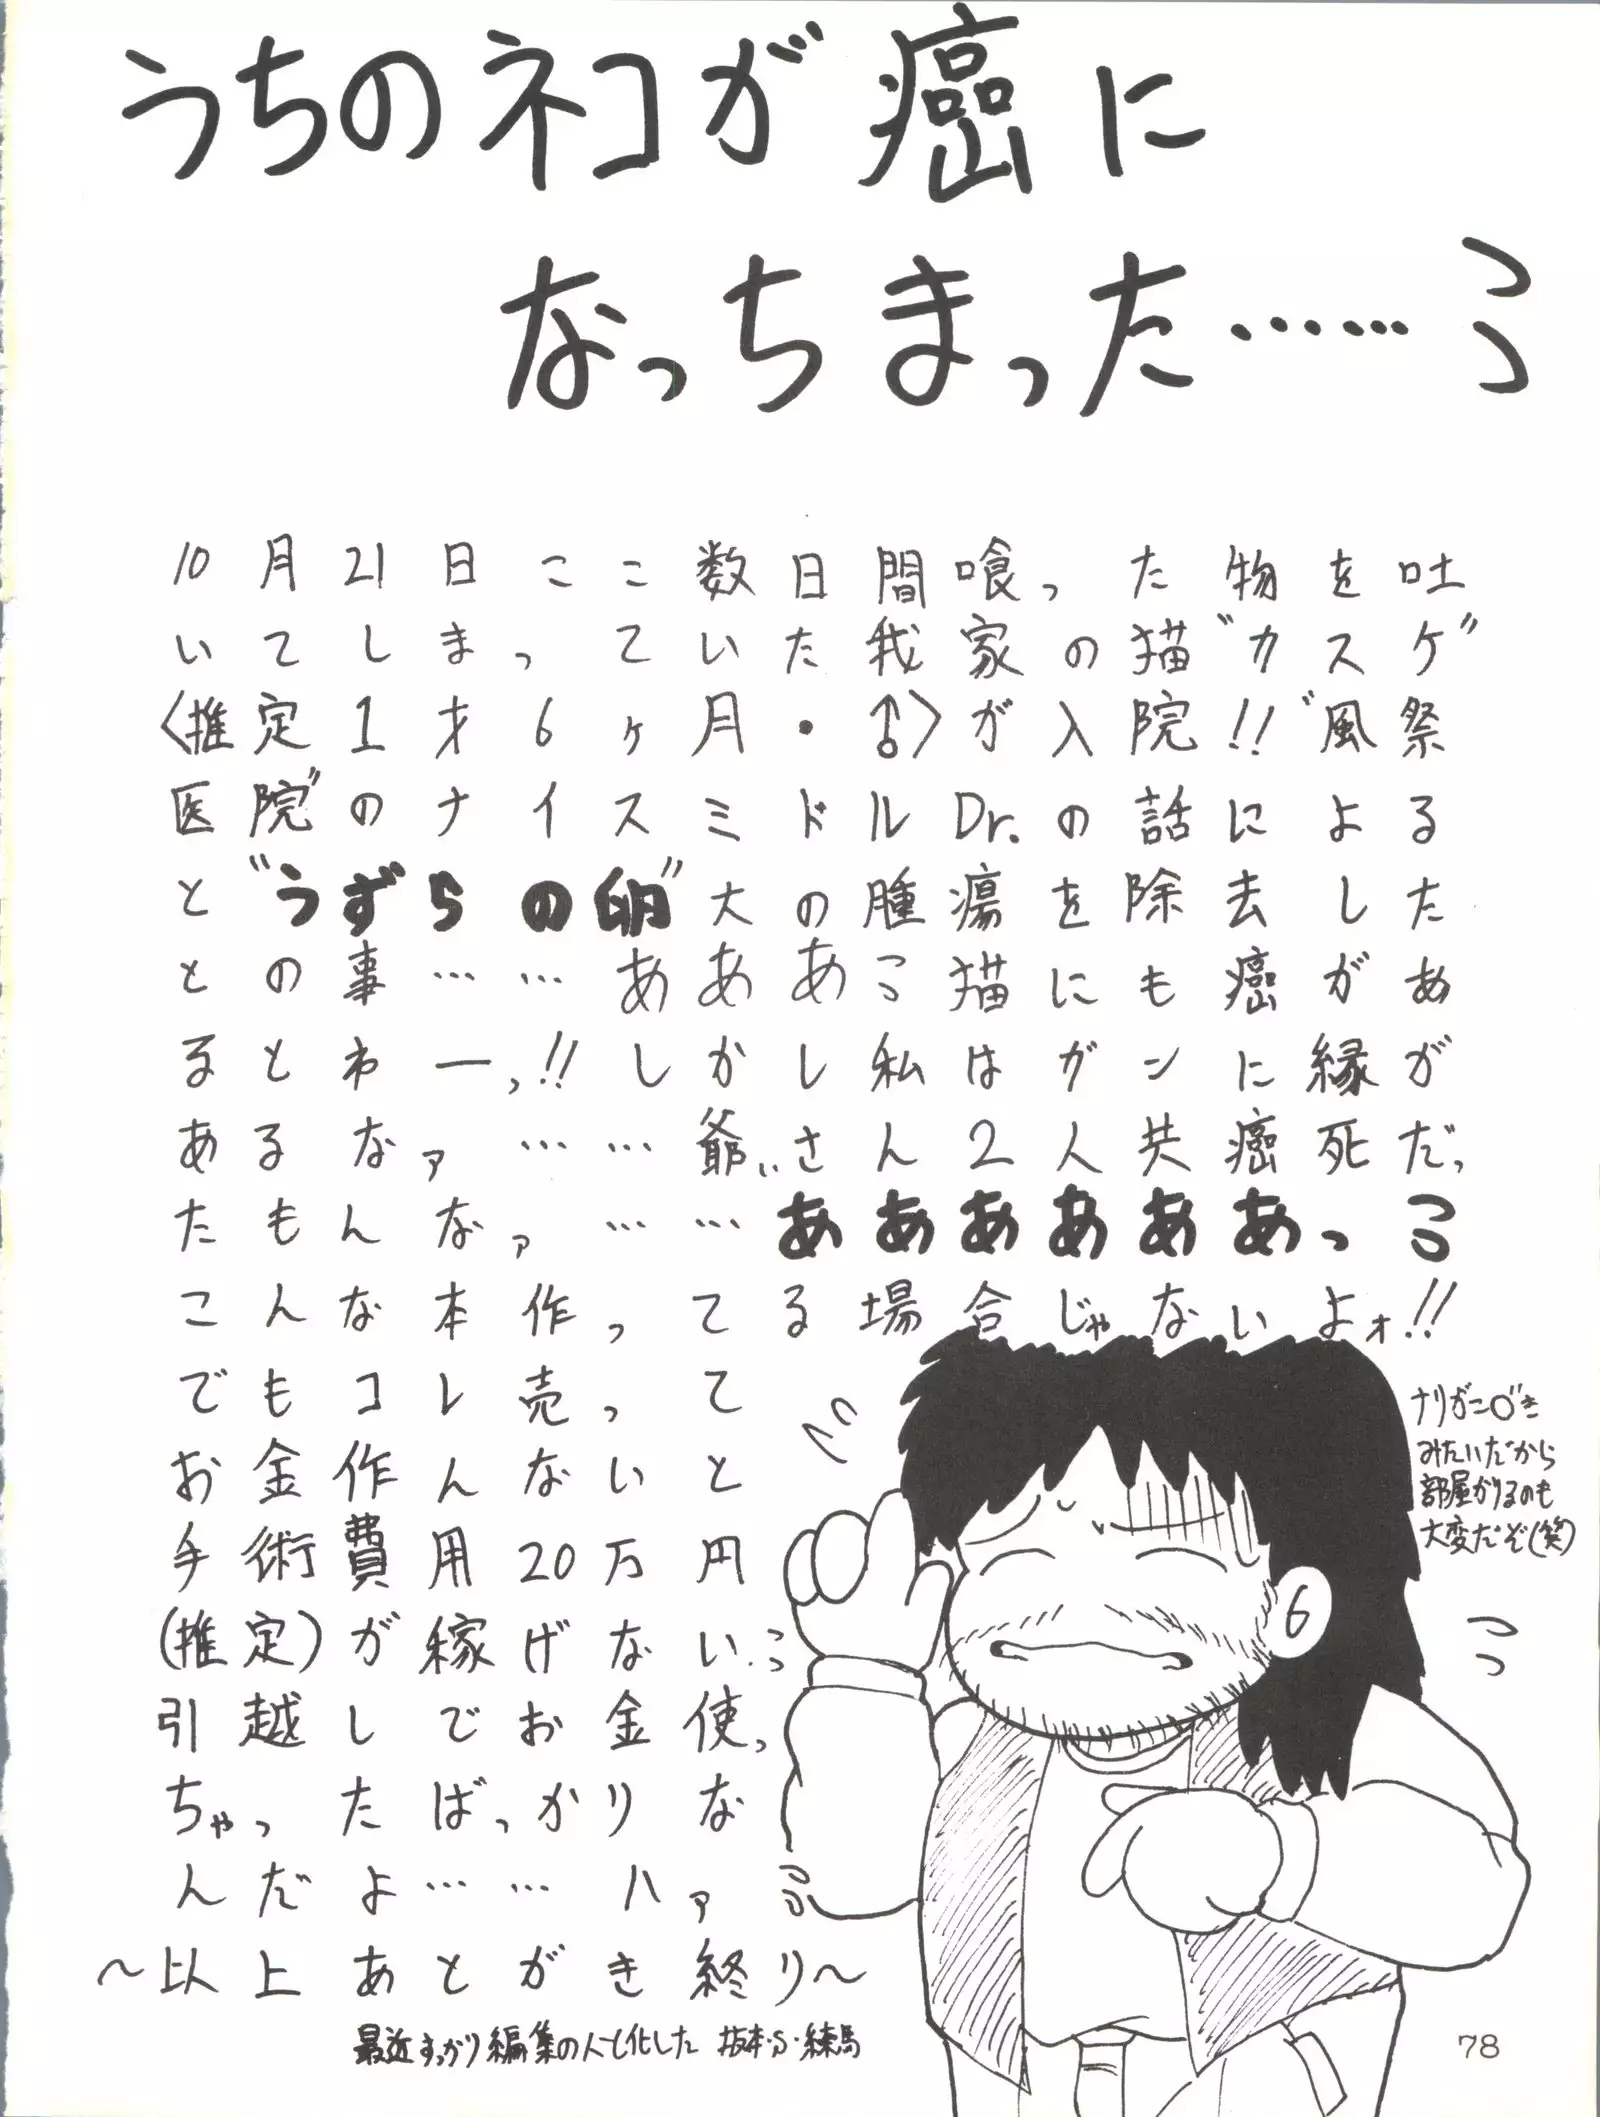 うちのネコが癌に
なっちまった……
10月21日ここ数日間喰った物を吐
いてしまっていた我家の猫"カスケ"
〈推定1才6ヶ月・♂〉が入院!!"風祭
医院"のナイスミドルDr.の話による
と"うずらの卵"大の腫瘍を除去した
との事……あああ猫にも癌があ
るとわーっ!!しかし私はガンに縁が
あるなァ……爺ぃさん2人共癌死だっ
たもんなァ……ああああああっ
こんな本作ってる場合じゃないよォ!!
でもコレ売って
お金作んないと
手術費用20万円
(推定)が稼げない
引越しでお金使っ
ちゃったばっかりな
んだよ……ハァ
〜以上あとがき終り〜
最近すっかり編集の人と化した 坂本・S・練馬
ナリがこ○"き
みたいだから
部屋かりるのも
大変だぞ(笑)
78